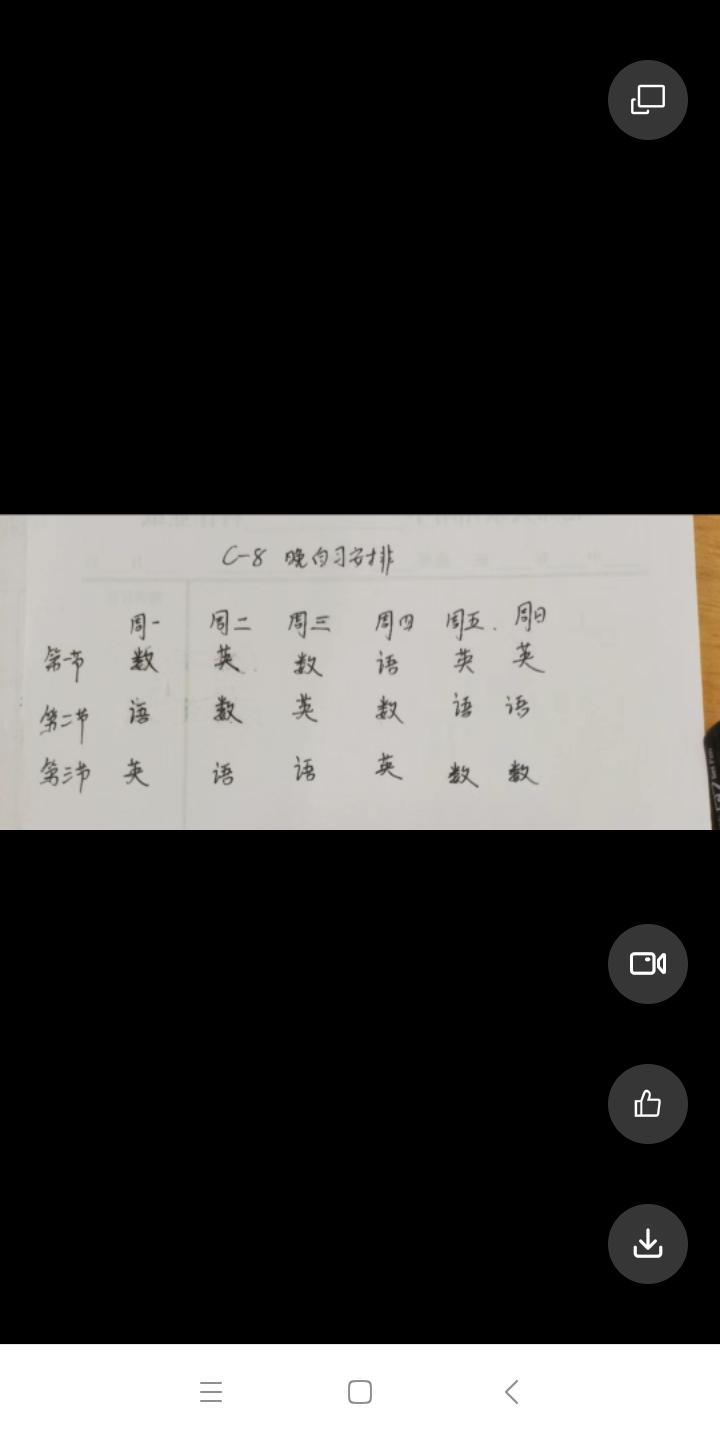 C-8 晚自习安排
周一 周二 周三 周四 周五. 周日
第一节 数 英 数 语 英 英
第二节 语 数 英 数 语 语
第三节 英 语 语 英 数 数